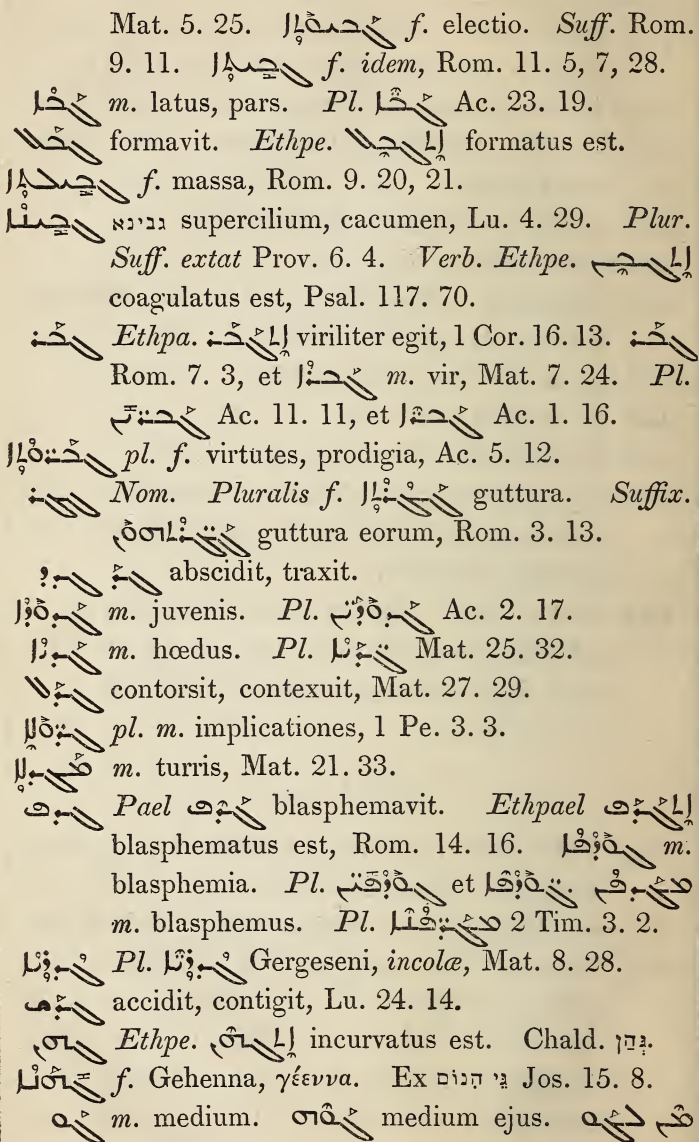 Mat. 5. 25. ܓܒܝܘܬܐ f. electio. Suff. Rom.
9. 11. ܓܒܝܬܐ f. idem, Rom. 11. 5, 7, 28.
ܓܒܐ m. latus, pars. Pl. ܓܒ̈ܐ Ac. 23. 19.
ܓܒܠ formavit. Ethpe. ܐܬܓܒܠ formatus est.
ܓܒܝܠܬܐ f. massa, Rom. 9. 20, 21.
ܓܒܝܢܐ גבינא supercilium, cacumen, Lu. 4. 29. Plur.
Suff. extat Prov. 6. 4. Verb. Ethpe. ܐܬܓܒܢ
coagulatus est, Psal. 117. 70.
ܓܒܪ Ethpa. ܐܬܓܒܪ viriliter egit, 1 Cor. 16. 13. ܓܒܪ
Rom. 7. 3, et ܓܒܪܐ m. vir, Mat. 7. 24. Pl.
ܓܒܪ̈ܝܢ Ac. 11. 11, et ܓܒܪ̈ܐ Ac. 1. 16.
ܓܒܪ̈ܘܬܐ pl. f. virtutes, prodigia, Ac. 5. 12.
ܓܓܪ Nom. Pluralis f. ܓܓܪ̈ܬܐ guttura. Suffix.
ܓܓܪ̈ܬܗܘܢ guttura eorum, Rom. 3. 13.
ܓܕܕ ܓܕ abscidit, traxit.
ܓܕܘܕܐ m. juvenis. Pl. ܓܕܘܕ̈ܝܢ Ac. 2. 17.
ܓܕܝܐ m. hœdus. Pl. ܓܕ̈ܝܐ Mat. 25. 32.
ܓܕܠ contorsit, contexuit, Mat. 27. 29.
ܓܕ̈ܘܠܐ pl. m. implicationes, 1 Pe. 3. 3.
ܡܓܕܠܐ m. turris, Mat. 21. 33.
ܓܕܦ Pael ܓܕܦ blasphemavit. Ethpael ܐܬܓܕܦ
blasphematus est, Rom. 14. 16. ܓܘܕܦܐ m.
blasphemia. Pl. ܓܘܕܦ̈ܝܢ et ܓܘܕܦ̈ܐ. ܡܓܕܦܢ
m. blasphemus. Pl. ܡܓܕ̈ܦܢܐ 2 Tim. 3. 2.
ܓܕܪܝܐ Pl. ܓܕܪ̈ܝܐ Gergeseni, incolæ, Mat. 8. 28.
ܓܕܫ accidit, contigit, Lu. 24. 14.
ܓܗܢ Ethpe. ܐܬܓܗܢ incurvatus est. Chald. גְּהַן.
ܓܗܢܐ f. Gehenna, γέεννα. Ex גֵּי הִנּוֹם Jos. 15. 8.
ܓܘ m. medium. ܓܘܗ medium ejus. ܡܢ ܠܓܘ